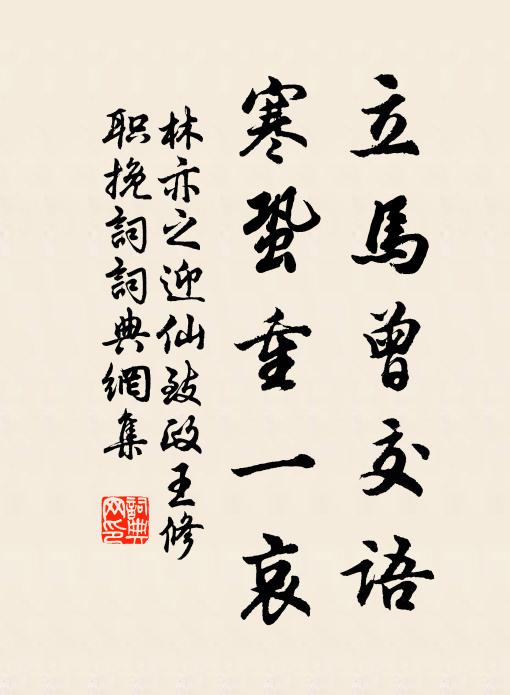 立馬曾交語
寒蛩重一哀
林亦之迎仙致政王修
职挽詞詞典網集
詞典
网印